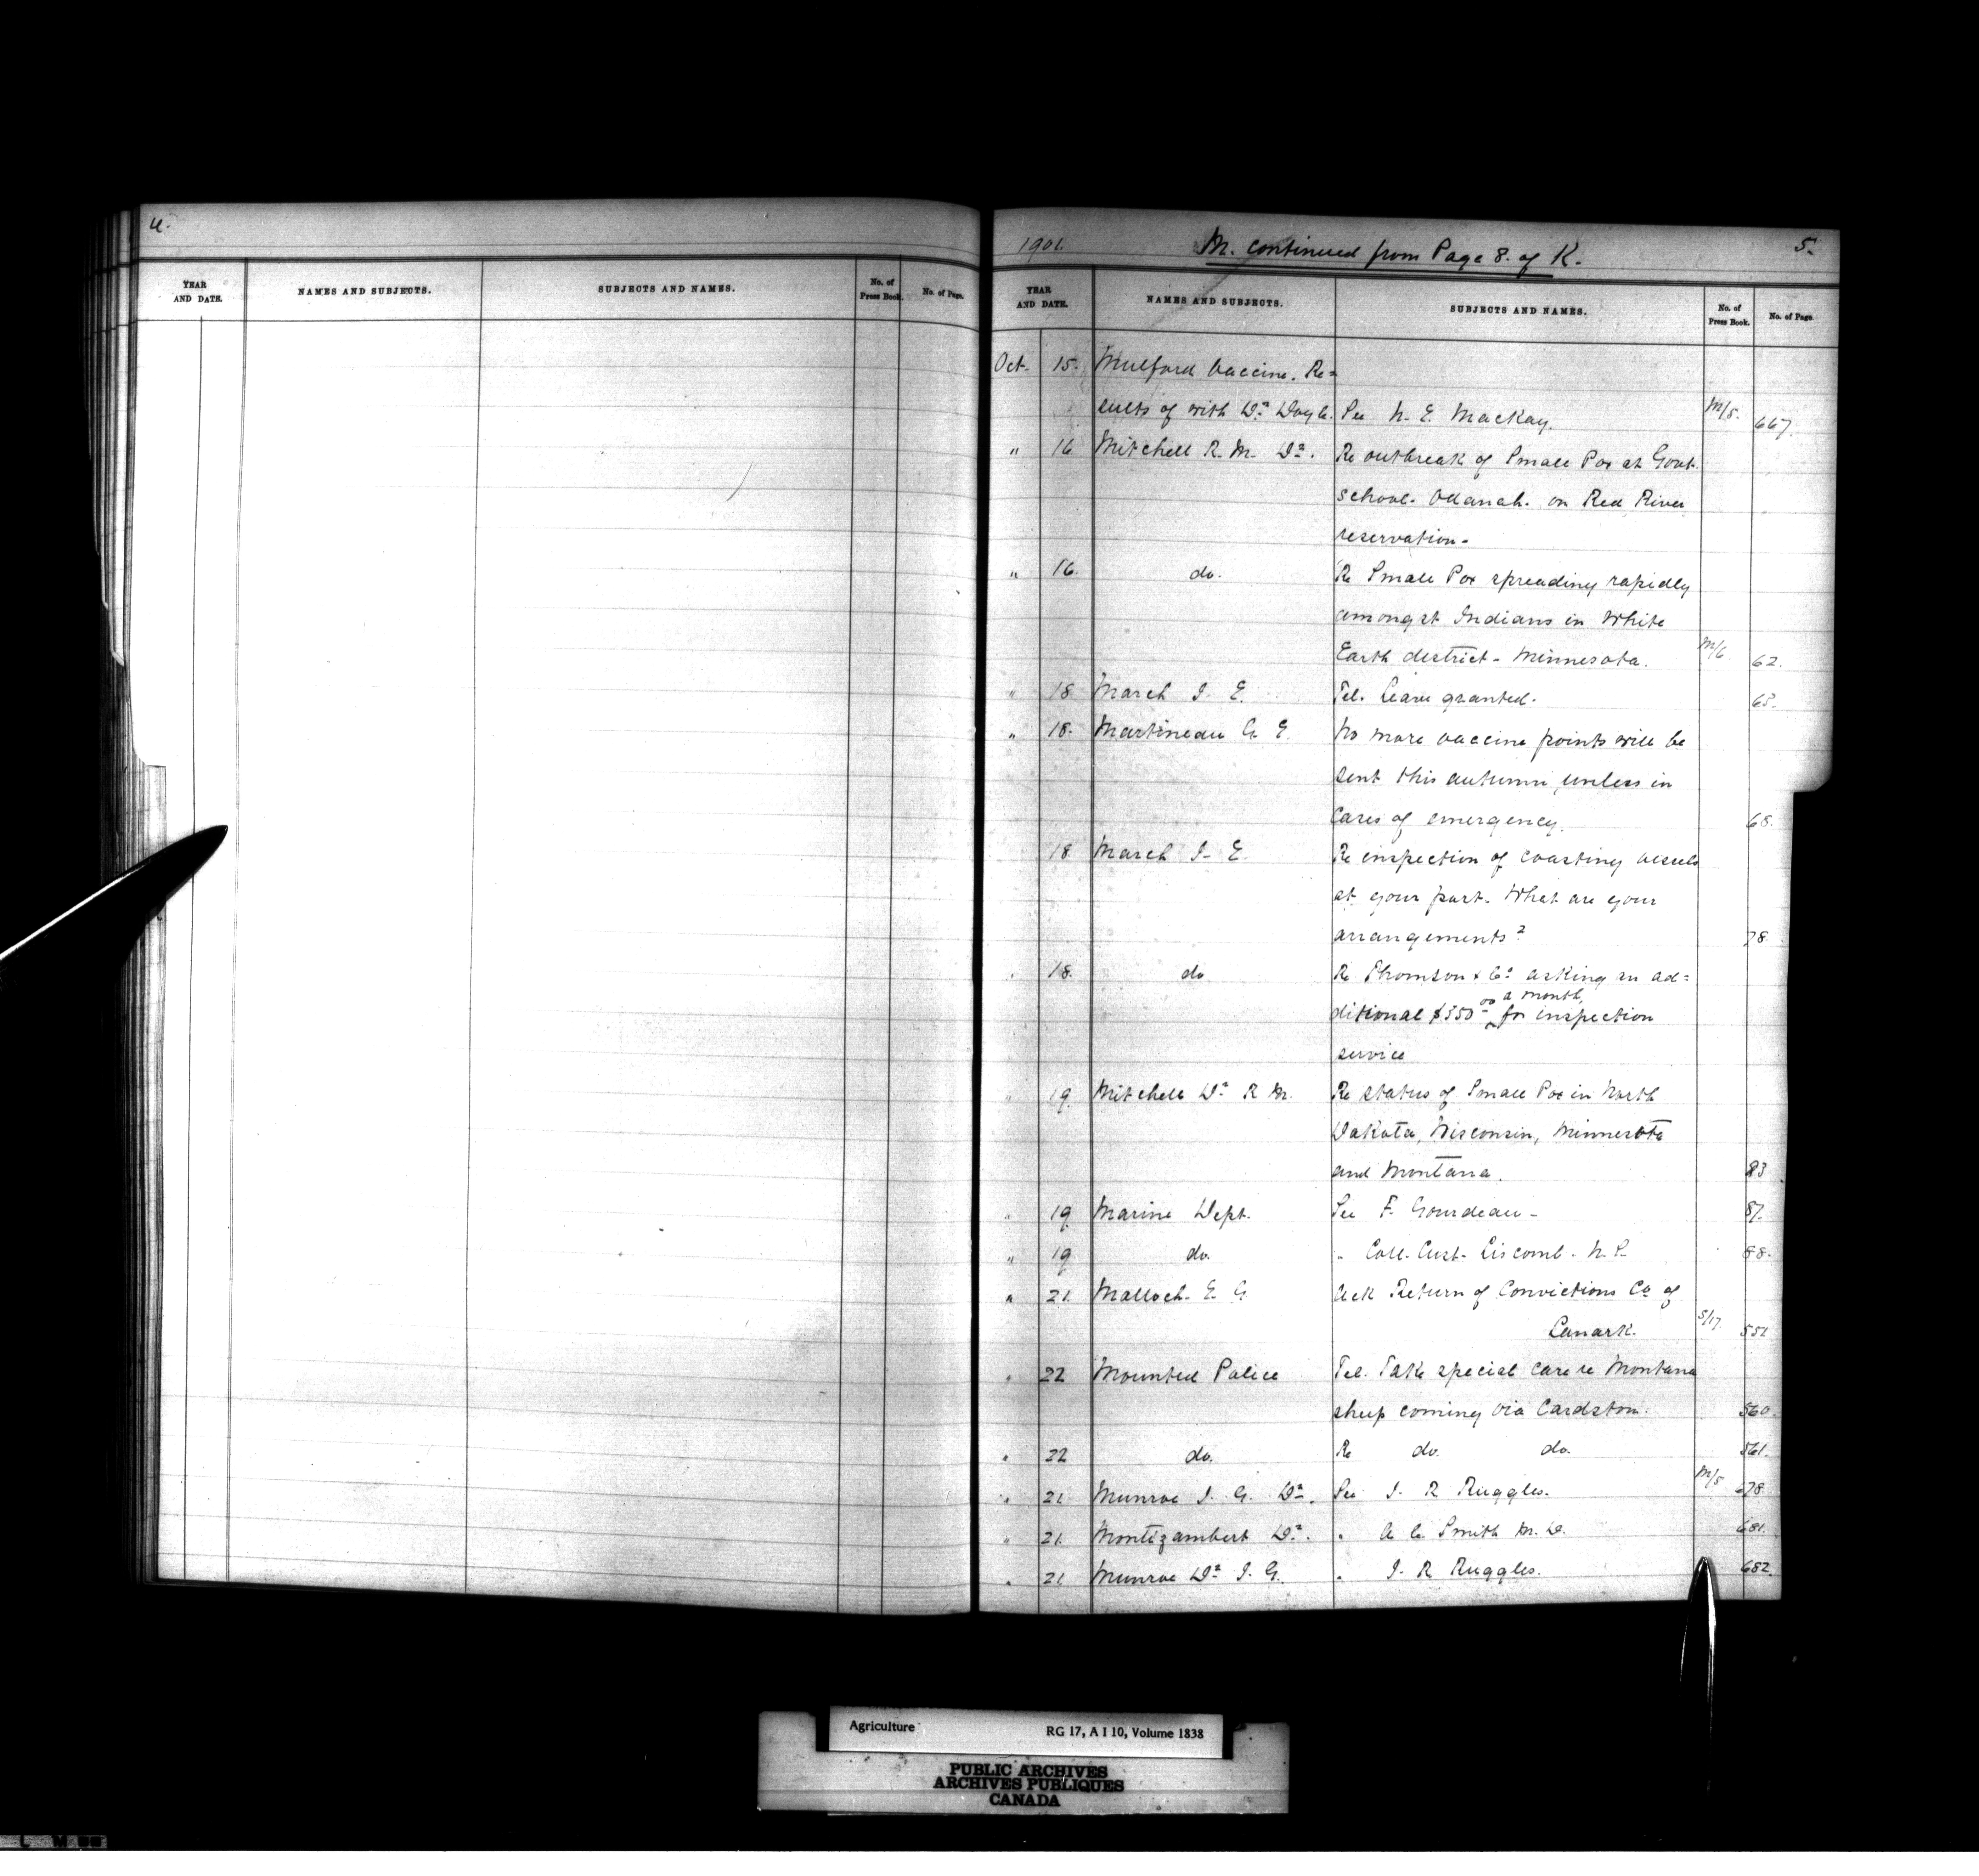 4.
YEAR
AND DATE.
NAMES AND SUBJECTS.
SUBJECTS AND NAMES.
No. of
Press Book.
No. of Page.
1901. M. continued from Page 8. of K. 5.
YEAR
AND DATE.
NAMES AND SUBJECTS.
SUBJECTS AND NAMES.
No. of
Press Book.
No. of Page.
Oct. 15. Mulford Vaccine. Re=
sults of with Dr Doyle. See N. E. MacKay. M/5. 667.
" 16 Mitchell R. M. Dr. Re outbreak of Small Pox at Govt.
school. Odanah. on Red River
reservation.
" 16. do. Re Small Pox spreading rapidly
amongst Indians in White
Earth district - Minnesota. M/6 62.
" 18 March J. E. Tel. Leave granted. 65.
" 18. Martineau G. E. No more vaccine points will be
sent this autumn, unless in
Cases of emergency. 68.
18 March J. E. Re inspection of coasting vessels
at your port. What are your
arrangements? 78.
" 18. do Re Thomson & Co asking an ad=
a month,
ditional $350 00 for inspection
service
" 19. Mitchell Dr R M. Re status of Small Pox in North
Dakota, Wisconsin, Minnesota
and Montana. 83.
" 19 Marine Dept. See F. Gourdeau - 87.
" 19 do. " Coll. Cust. Liscomb - N. S. 88.
" 21. Malloch. E. G Ack Return of Convictions Co of
Lanark. S/17. 551
" 22 Mounted Police Tel. Take special care re Montana
sheep coming via Cardston. 560.
" 22 do. Re do. do. 561.
" 21 Munroe J. G. Dr. See J. R Ruggles. M/5 678
" 21. Montizambert Dr. " A. C. Smith M. D. 681.
" 21 Munroe Dr J. G. " J. R Ruggles. 682.
Agriculture RG 17, A I 10, Volume 1838
PUBLIC ARCHIVES
ARCHIVES PUBLIQUES
CANADA